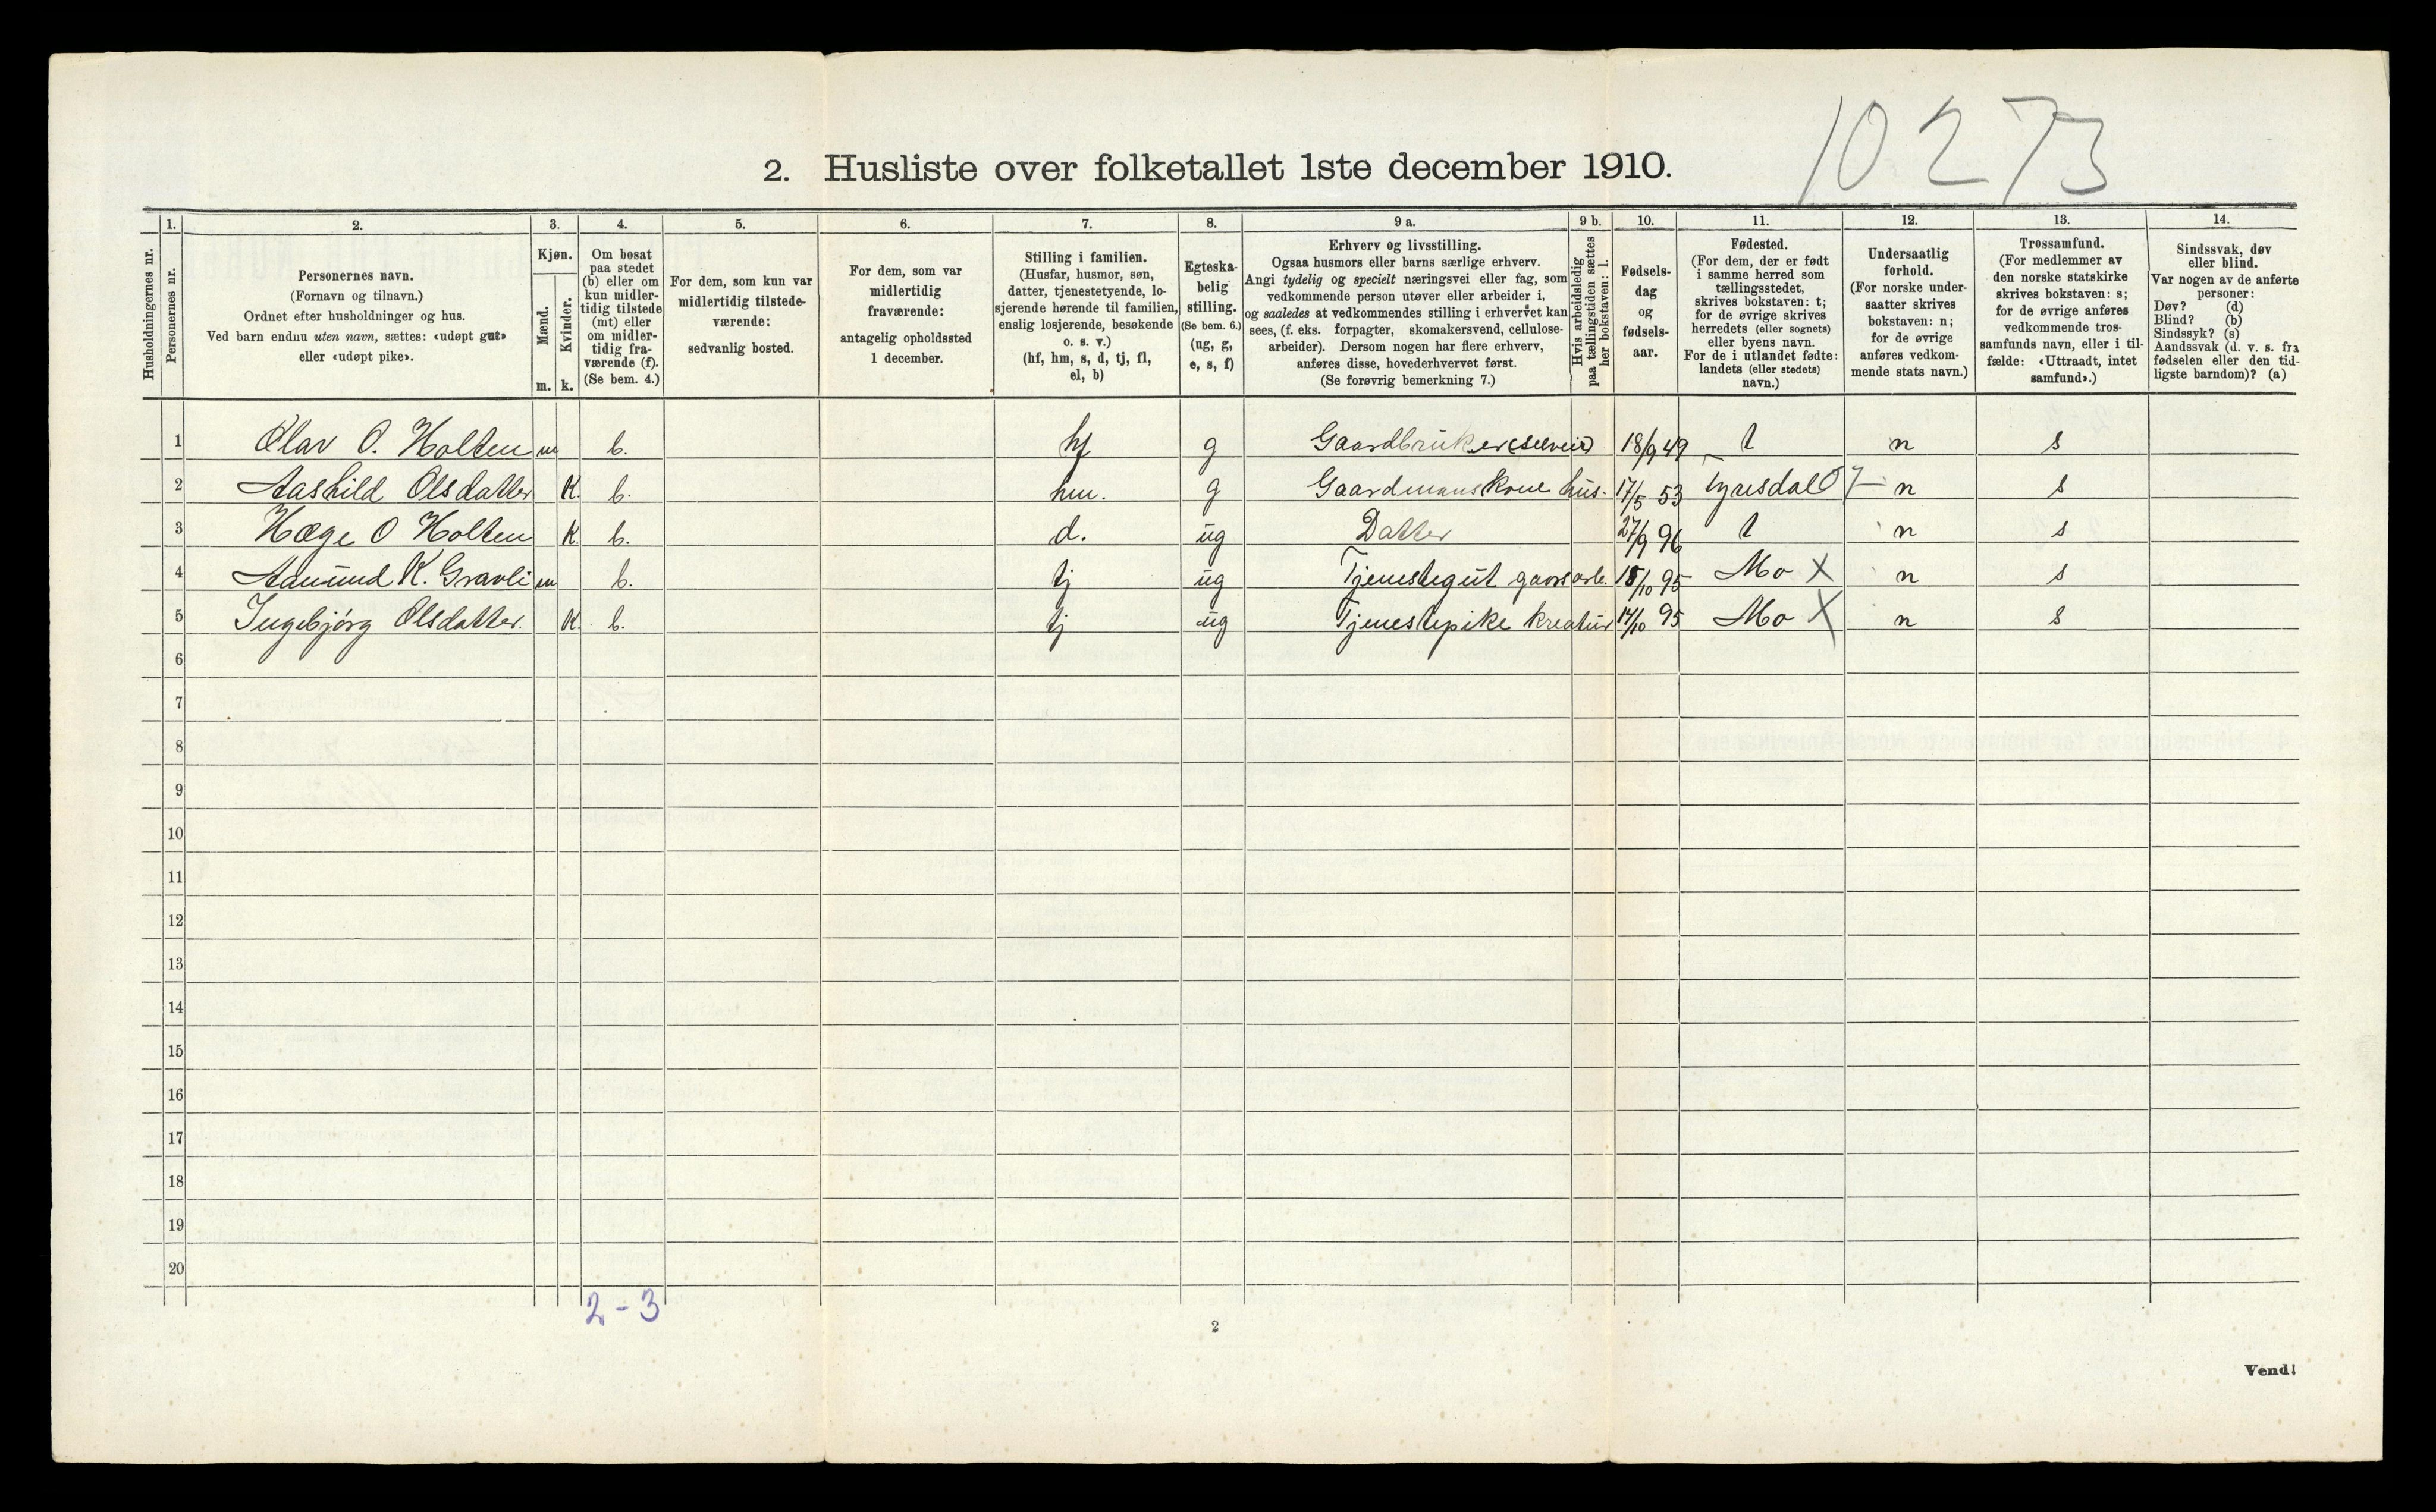 10273
2. Husliste over folketallet 1ste december 1910.
Husholdningernes nr.
1.
Personernes nr.
2.
Personernes navn.
(Fornavn og tilnavn.)
Ordnet efter husholdninger og hus.
Ved barn endnu uten navn, sættes: «udøpt gut»
eller «udøpt pike».
3.
Kjøn.
Mænd.
m.
Kvinder.
k.
4.
Om bosat
paa stedet
(b) eller om
kun midler-
tidig tilstede
(mt) eller
om midler-
tidig fra-
værende (f).
(Se bem. 4.)
5.
For dem, som kun var
midlertidig tilstede-
værende:
sedvanlig bosted.
6.
For dem, som var
midlertidig
fraværende:
antagelig opholdssted
1 december.
7.
Stilling i familien.
(Husfar, husmor, søn,
datter, tjenestetyende, lo-
sjerende hørende til familien,
enslig losjerende, besøkende
o. s. v.)
(hf, hm, s, d, tj, fl,
el, b)
8.
Egteska-
belig
stilling.
(Se bem. 6.)
(ug, g,
e, s, f)
9 a.
Erhverv og livsstilling.
Ogsaa husmors eller barns særlige erhverv.
Angi tydelig og specielt næringsvei eller fag, som
vedkommende person utøver eller arbeider i,
og saaledes at vedkommendes stilling i erhvervet kan
sees, (f. eks. forpagter, skomakersvend, cellulose-
arbeider). Dersom nogen har flere erhverv,
anføres disse, hovederhvervet først.
(Se forøvrig bemerkning 7.)
9 b.
Hvis arbeidsledig
paa tællingstiden sættes
her bokstaven: l.
10.
Fødsels-
dag
og
fødsels-
aar.
11.
Fødested.
(For dem, der er født
i samme herred som
tællingsstedet,
skrives bokstaven: t;
for de øvrige skrives
herredets (eller sognets)
eller byens navn.
For de i utlandet fødte:
landets (eller stedets)
navn.)
12.
Undersaatlig
forhold.
(For norske under-
saatter skrives
bokstaven: n;
for de øvrige
anføres vedkom-
mende stats navn.)
13.
Trossamfund.
(For medlemmer av
den norske statskirke
skrives bokstaven: s;
for de øvrige anføres
vedkommende tros-
samfunds navn, eller i til-
fælde: «Uttraadt, intet
samfund».)
14.
Sindssvak, døv
eller blind.
Var nogen av de anførte
personer:
Døv? (d)
Blind? (b)
Sindssyk? (s)
Aandssvak (d. v. s. fra
fødselen eller den tid-
ligste barndom)? (a)
1 Olav O. Holten m b. hf g Gaardbruker (selveier) 18/9 49 t n s
2 Aashild Olsdatter K. b. hm. g Gaardmanskone hus. 17/5 53 Tyresdal 07 n s
3 Hæge O Holten K. b. d. ug Datter 27/9 96 t n s
4 Aamund K. Gravli m b. tj ug Tjenestegut 18/10 95 Mo X n s
5 Ingebjørg Olsdatter. K. b. tj ug Tjenestepike kreatur 14/10 95 Mo X n s
6
7
8
9
10
11
12
13
14
15
16
17
18
19
20
2-3
2
Vend!